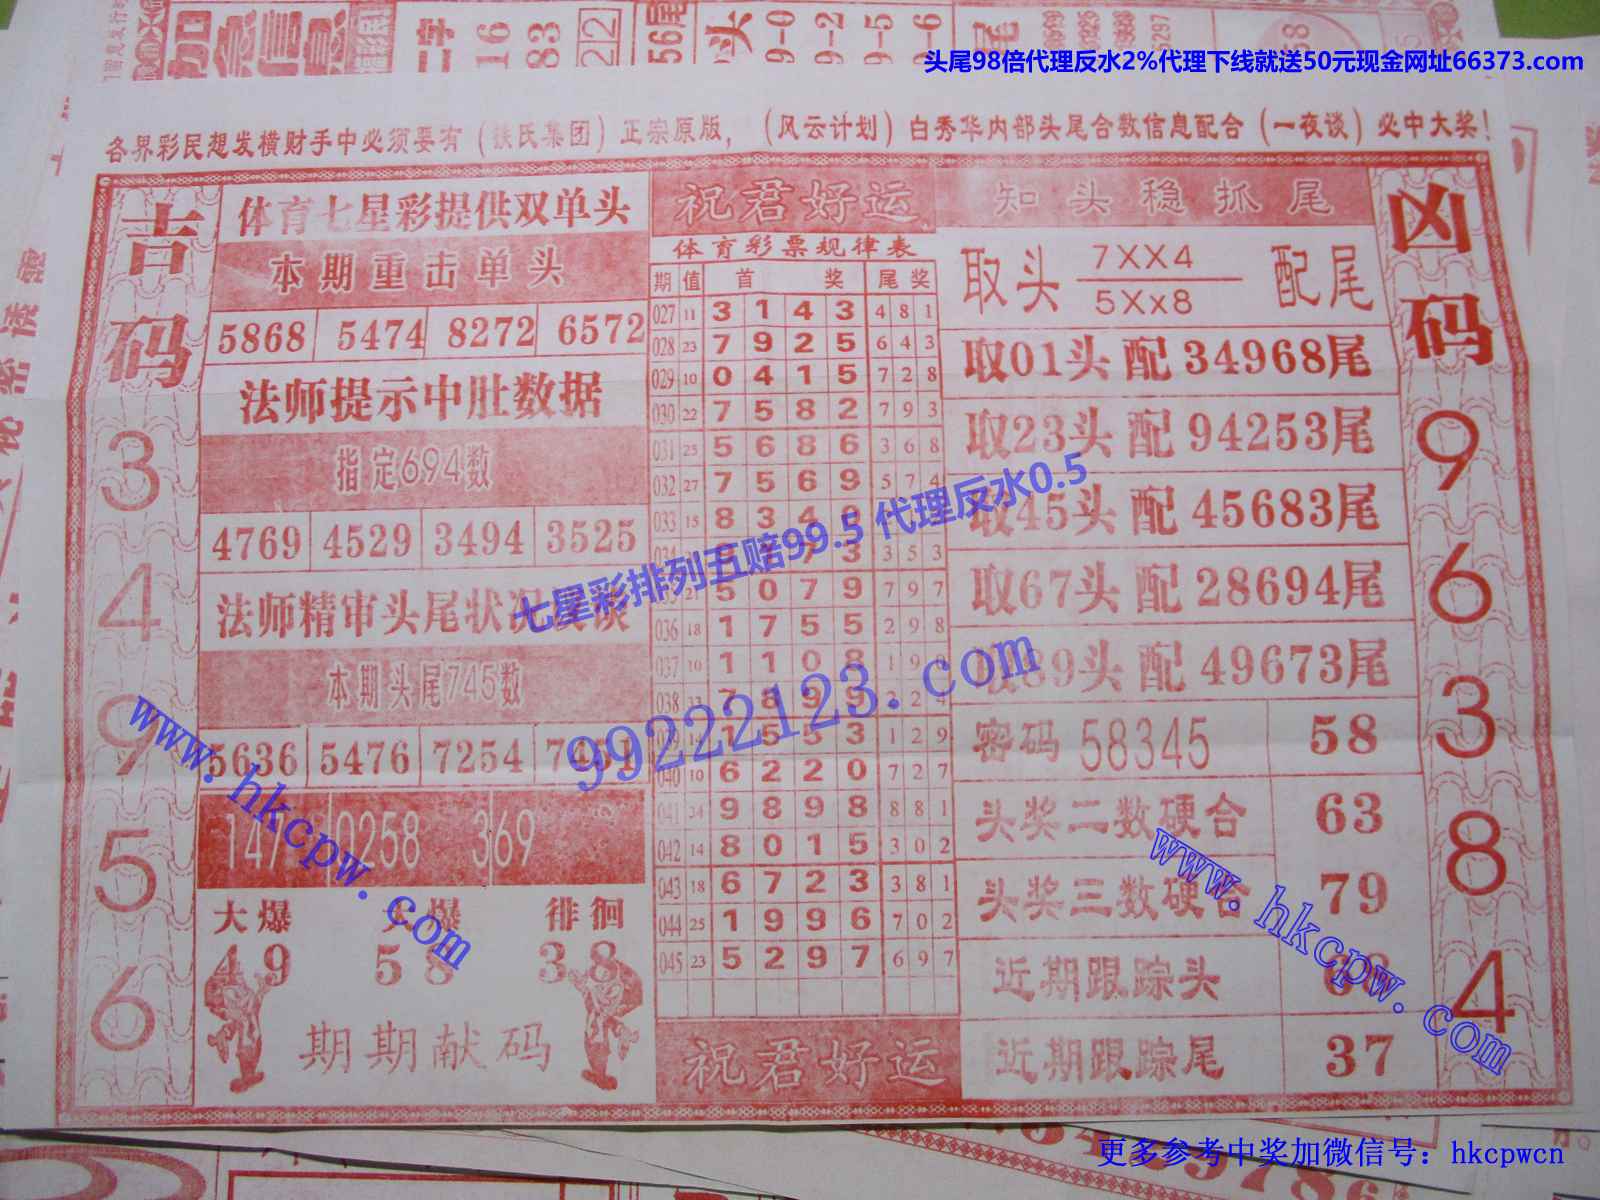 加急信息
二字
16
83
22
56尾
头
9-0
9-2
9-5
9-6
尾
头尾98倍代理反水2%代理下线就送50元现金网址66373.com
各界彩民想发横财手中必须要有(铁氏集团)正宗原版,(风云计划)白秀华内部头尾合数信息配合(一夜谈)必中大奖!
吉码
3
4
9
5
6
体育七星彩提供双单头
本期重击单头
5868 5474 8272 6572
法师提示中肚数据
指定694数
4769 4529 3494 3525
法师精审头尾状况
本期头尾745数
5636 5476 7254 7451
147 0258 369
大爆 大爆 徘徊
49 58 38
期期献码
祝君好运
体育彩票规律表
期 值 首 奖 尾 奖
027 11 3 1 4 3 4 8 1
028 23 7 9 2 5 6 4 3
029 10 0 4 1 5 7 2 8
030 22 7 5 8 2 7 9 3
031 25 5 6 8 6 3 6 8
032 27 7 5 6 9 5 7 4
033 15 8 3 4
3 3 5 3
5 0 7 9 7 9 7
036 18 1 7 5 5 2 9 8
037 10 1 1 0 8 1 9
038 7 8 9 9 2 2 4
1 5 5 3 1 2 9
040 10 6 2 2 0 7 2 7
041 34 9 8 9 8 8 8 1
042 14 8 0 1 5 3 0 2
043 18 6 7 2 3 3 8 1
044 25 1 9 9 6 7 0 2
045 23 5 2 9 7 6 9 7
祝君好运
知头稳抓尾
取头 7XX4 配尾
5Xx8
取01头 配 34968尾
取23头 配 94253尾
取45头 配 45683尾
取67头 配 28694尾
取89头 配 49673尾
密码 58345 58
头奖二数硬合 63
头奖三数硬合 79
近期跟踪头 68
近期跟踪尾 37
凶码
9
6
3
8
4
七星彩排列五赔99.5 代理反水0.5
99222123.com
www.hkcpw.com
www.hkcpw.com
更多参考中奖加微信号：hkcpwcn